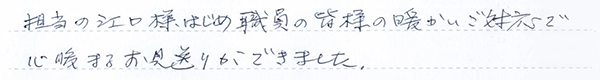 担当の江口様はじめ職員の皆様の暖かいご対応で
心暖まるお見送りができました。